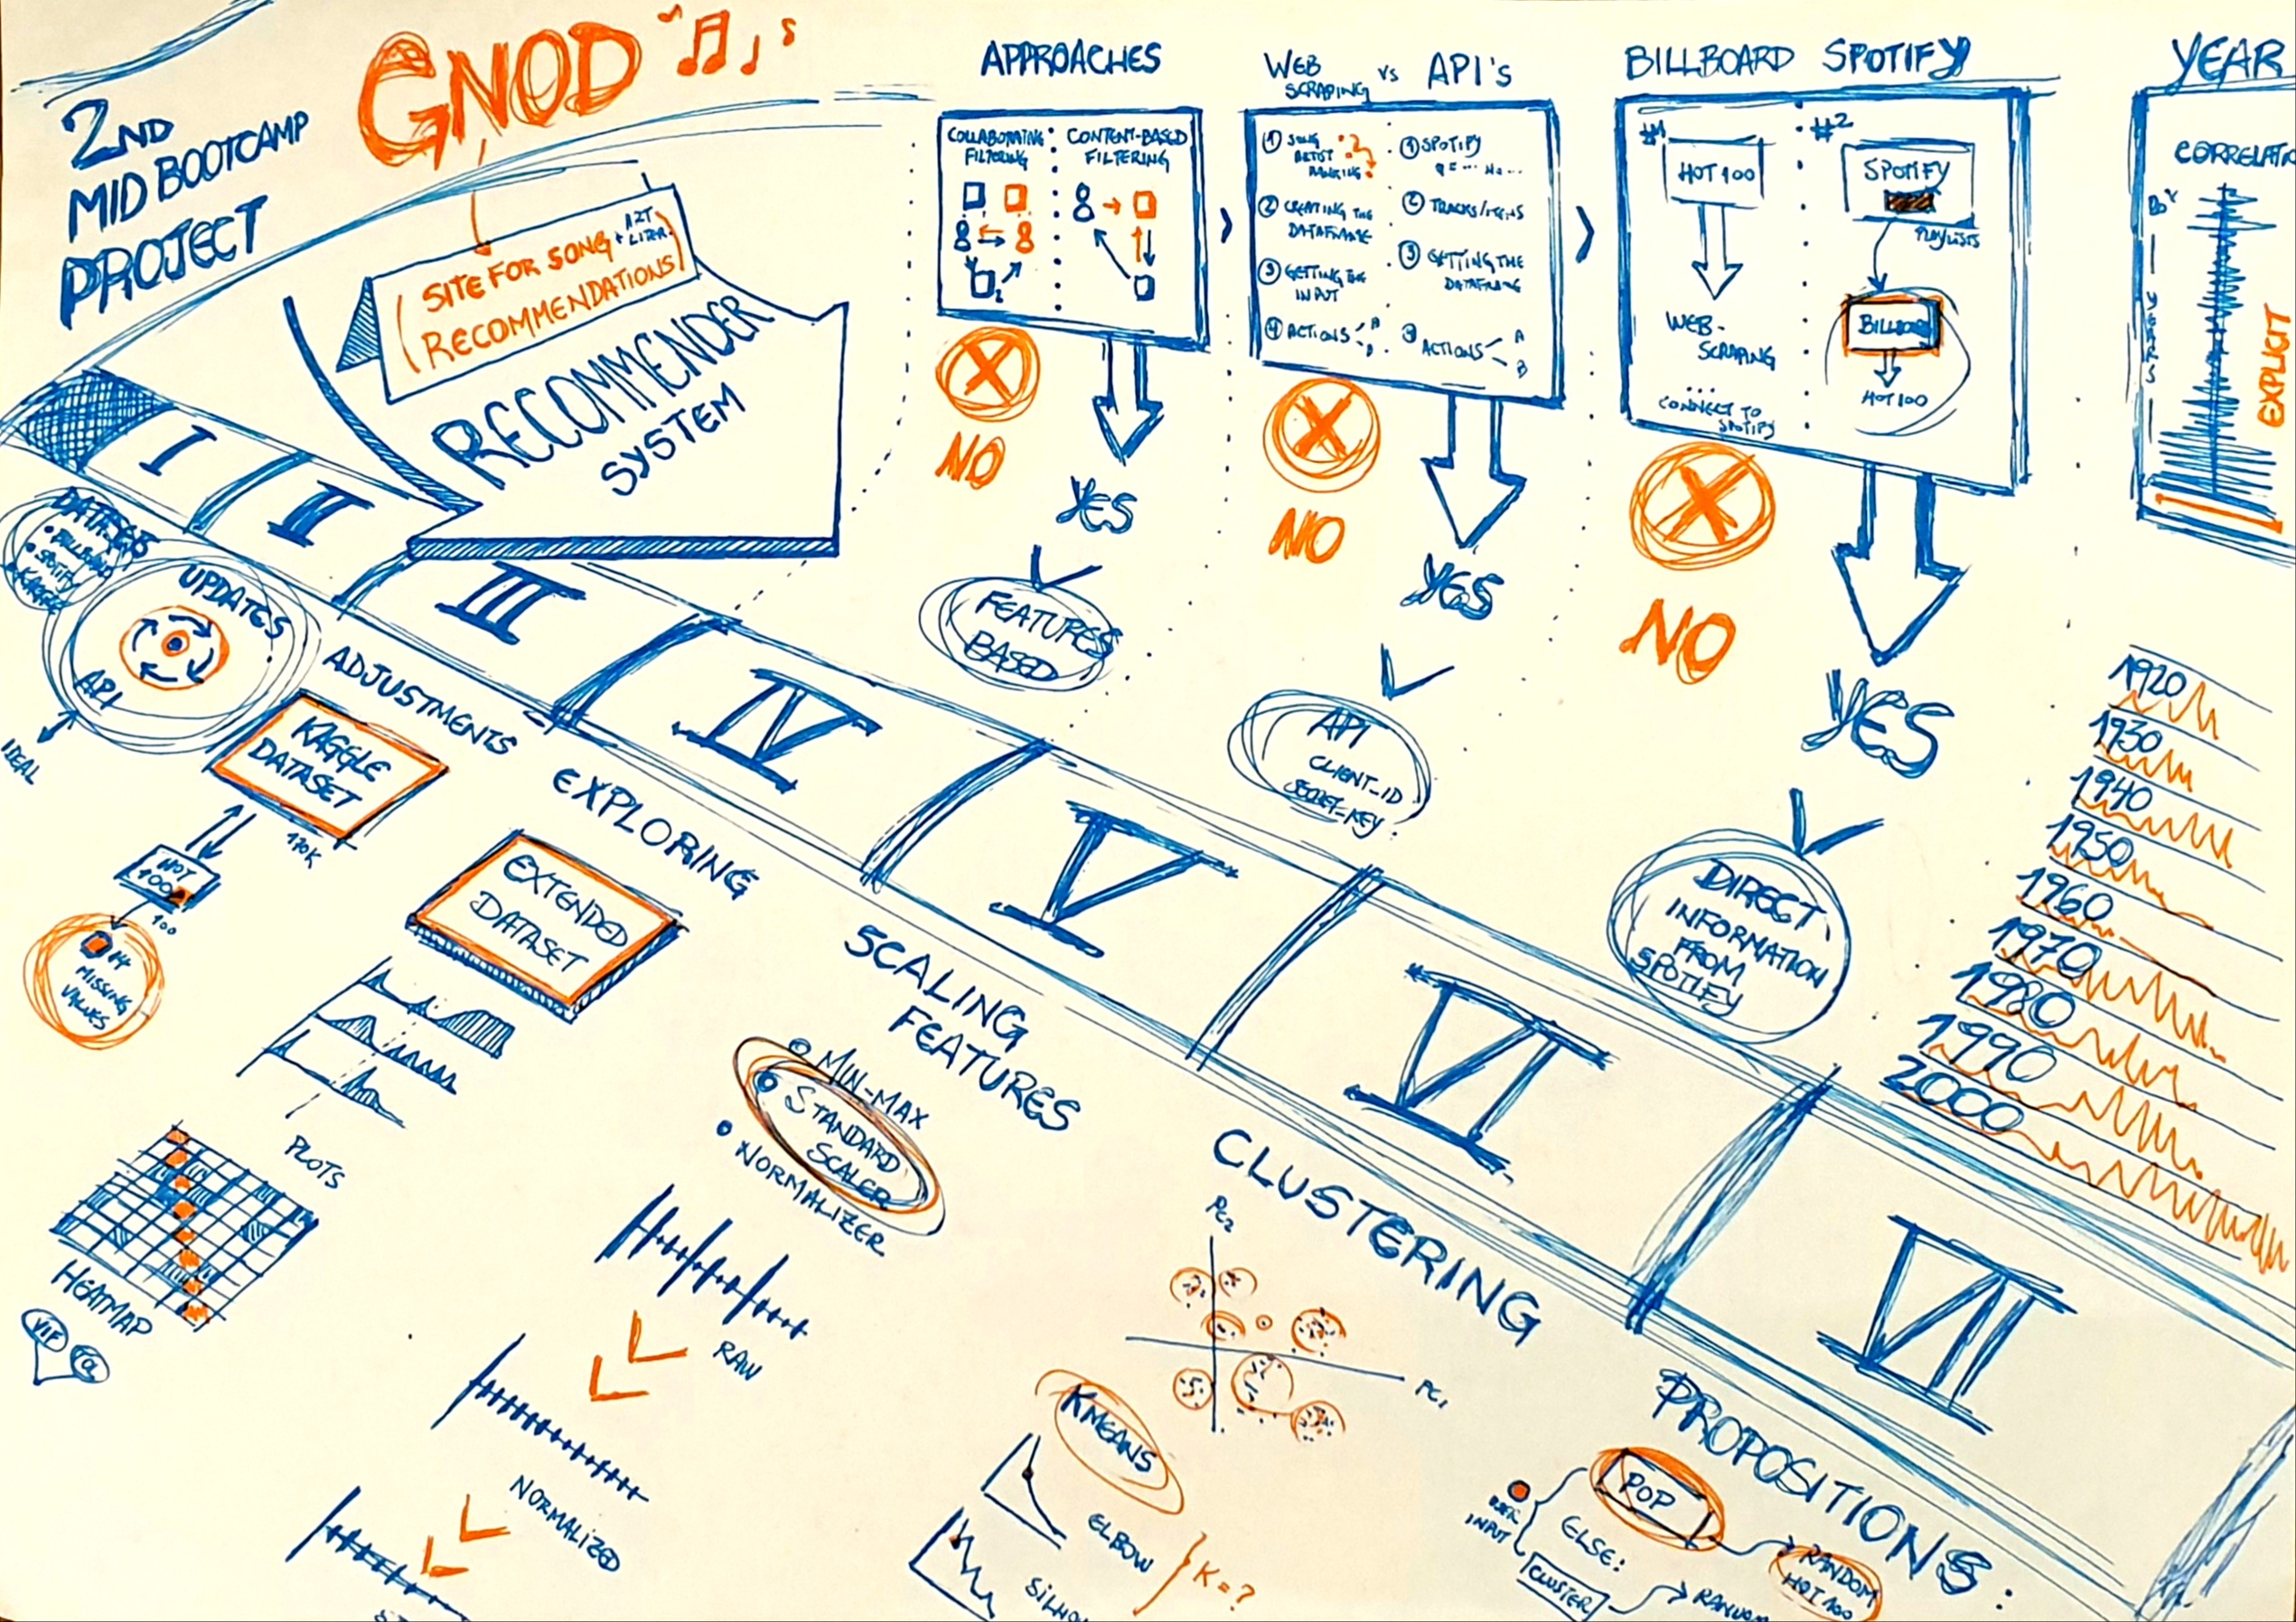 2ND
MID BOOTCAMP
PROJECT
GNOD
SITE FOR SONG
RECOMMENDATIONS
RECOMMENDER
SYSTEM
APPROACHES
COLLABORATING
FILTERING
CONTENT-BASED
FILTERING
NO
YES
FEATURES
BASED
WEB
SCRAPING
VS
API'S
① SONG
ARTIST
RANKING
② CREATING THE
DATAFRAME
③ GETTING THE
INPUT
④ ACTIONS
① SPOTIFY
② TRACKS/ITEMS
③ GETTING THE
DATAFRAME
④ ACTIONS
A
B
NO
YES
API
CLIENT_ID
SECRET_KEY
BILLBOARD SPOTIFY
#1
HOT 100
WEB-
SCRAPING
...
CONNECT TO
SPOTIFY
#2
SPOTIFY
PLAYLISTS
BILLBOARD
HOT 100
NO
YES
DIRECT
INFORMATION
FROM
SPOTIFY
YEAR
CORRELATIO
EXPLICIT
1920
1930
1940
1950
1960
1970
1980
1990
2000
I
II
III
IV
V
VI
VII
• BILLBOARD
• SPOTIFY
• KAGGLE
UPDATES
API
IDEAL
ADJUSTMENTS
KAGGLE
DATASET
170K
HOT
100
100
14
MISSING
VALUES
EXPLORING
EXTENDED
DATASET
PLOTS
HEATMAP
VIF
SCALING
FEATURES
• MIN-MAX
• STANDARD
SCALER
• NORMALIZER
RAW
NORMALIZED
CLUSTERING
PC2
PC1
KMEANS
ELBOW
SILHO
K = ?
PROPOSITIONS:
USER
INPUT
POP
ELSE:
CLUSTER
RANDOM
HOT 100
RANDOM